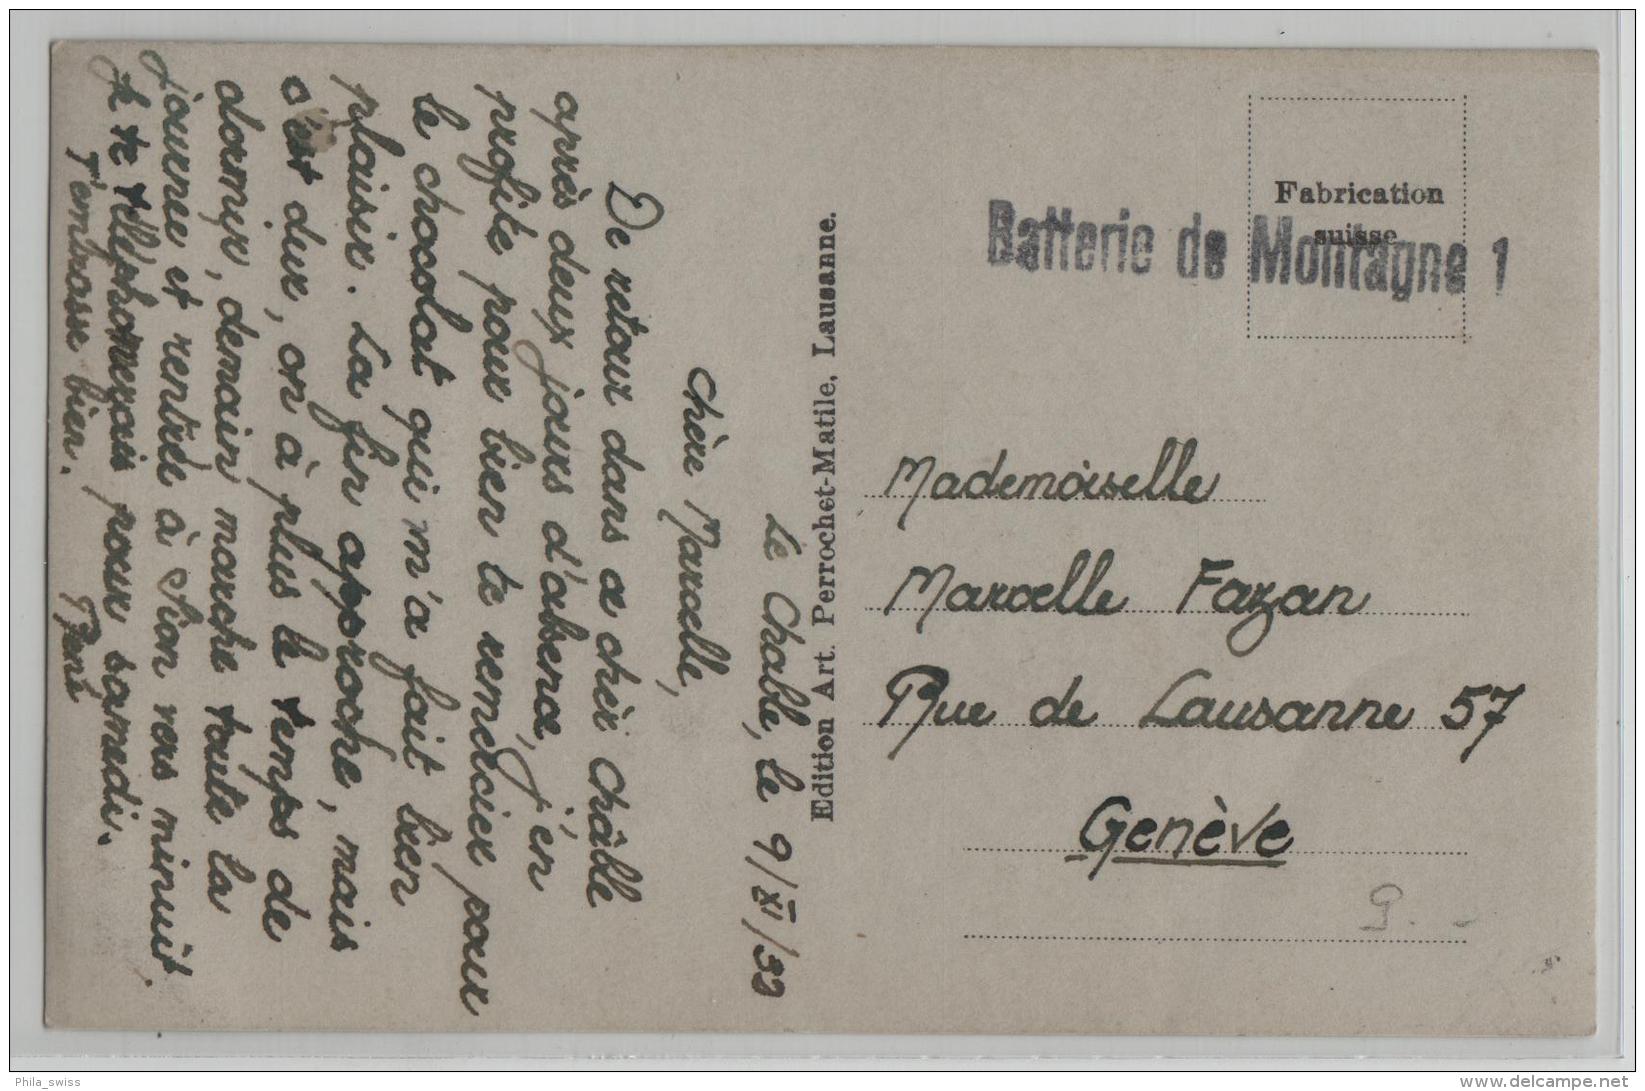 Le Chable, le 9/XI/32
Chère Marcelle,
De retour dans ce chèr Châble
après deux jours d'absence, j'en
profite pour bien te remercier pour
le chocolat qui m'a fait bien
plaisir. La fin approche, mais
c'est dur, on à plus le temps de
dormir, demain marche toute la
journee et rentrée à Sion vers minuit.
Je te télephonerais pour samedi.
T'embrasse bien.
René
Edition Art. Perrochet-Matile, Lausanne.
Fabrication
suisse
Batterie de Montagne 1
Mademoiselle
Marcelle Fazan
Rue de Lausanne 57
Genève
Phila_swiss
www.delcampe.net